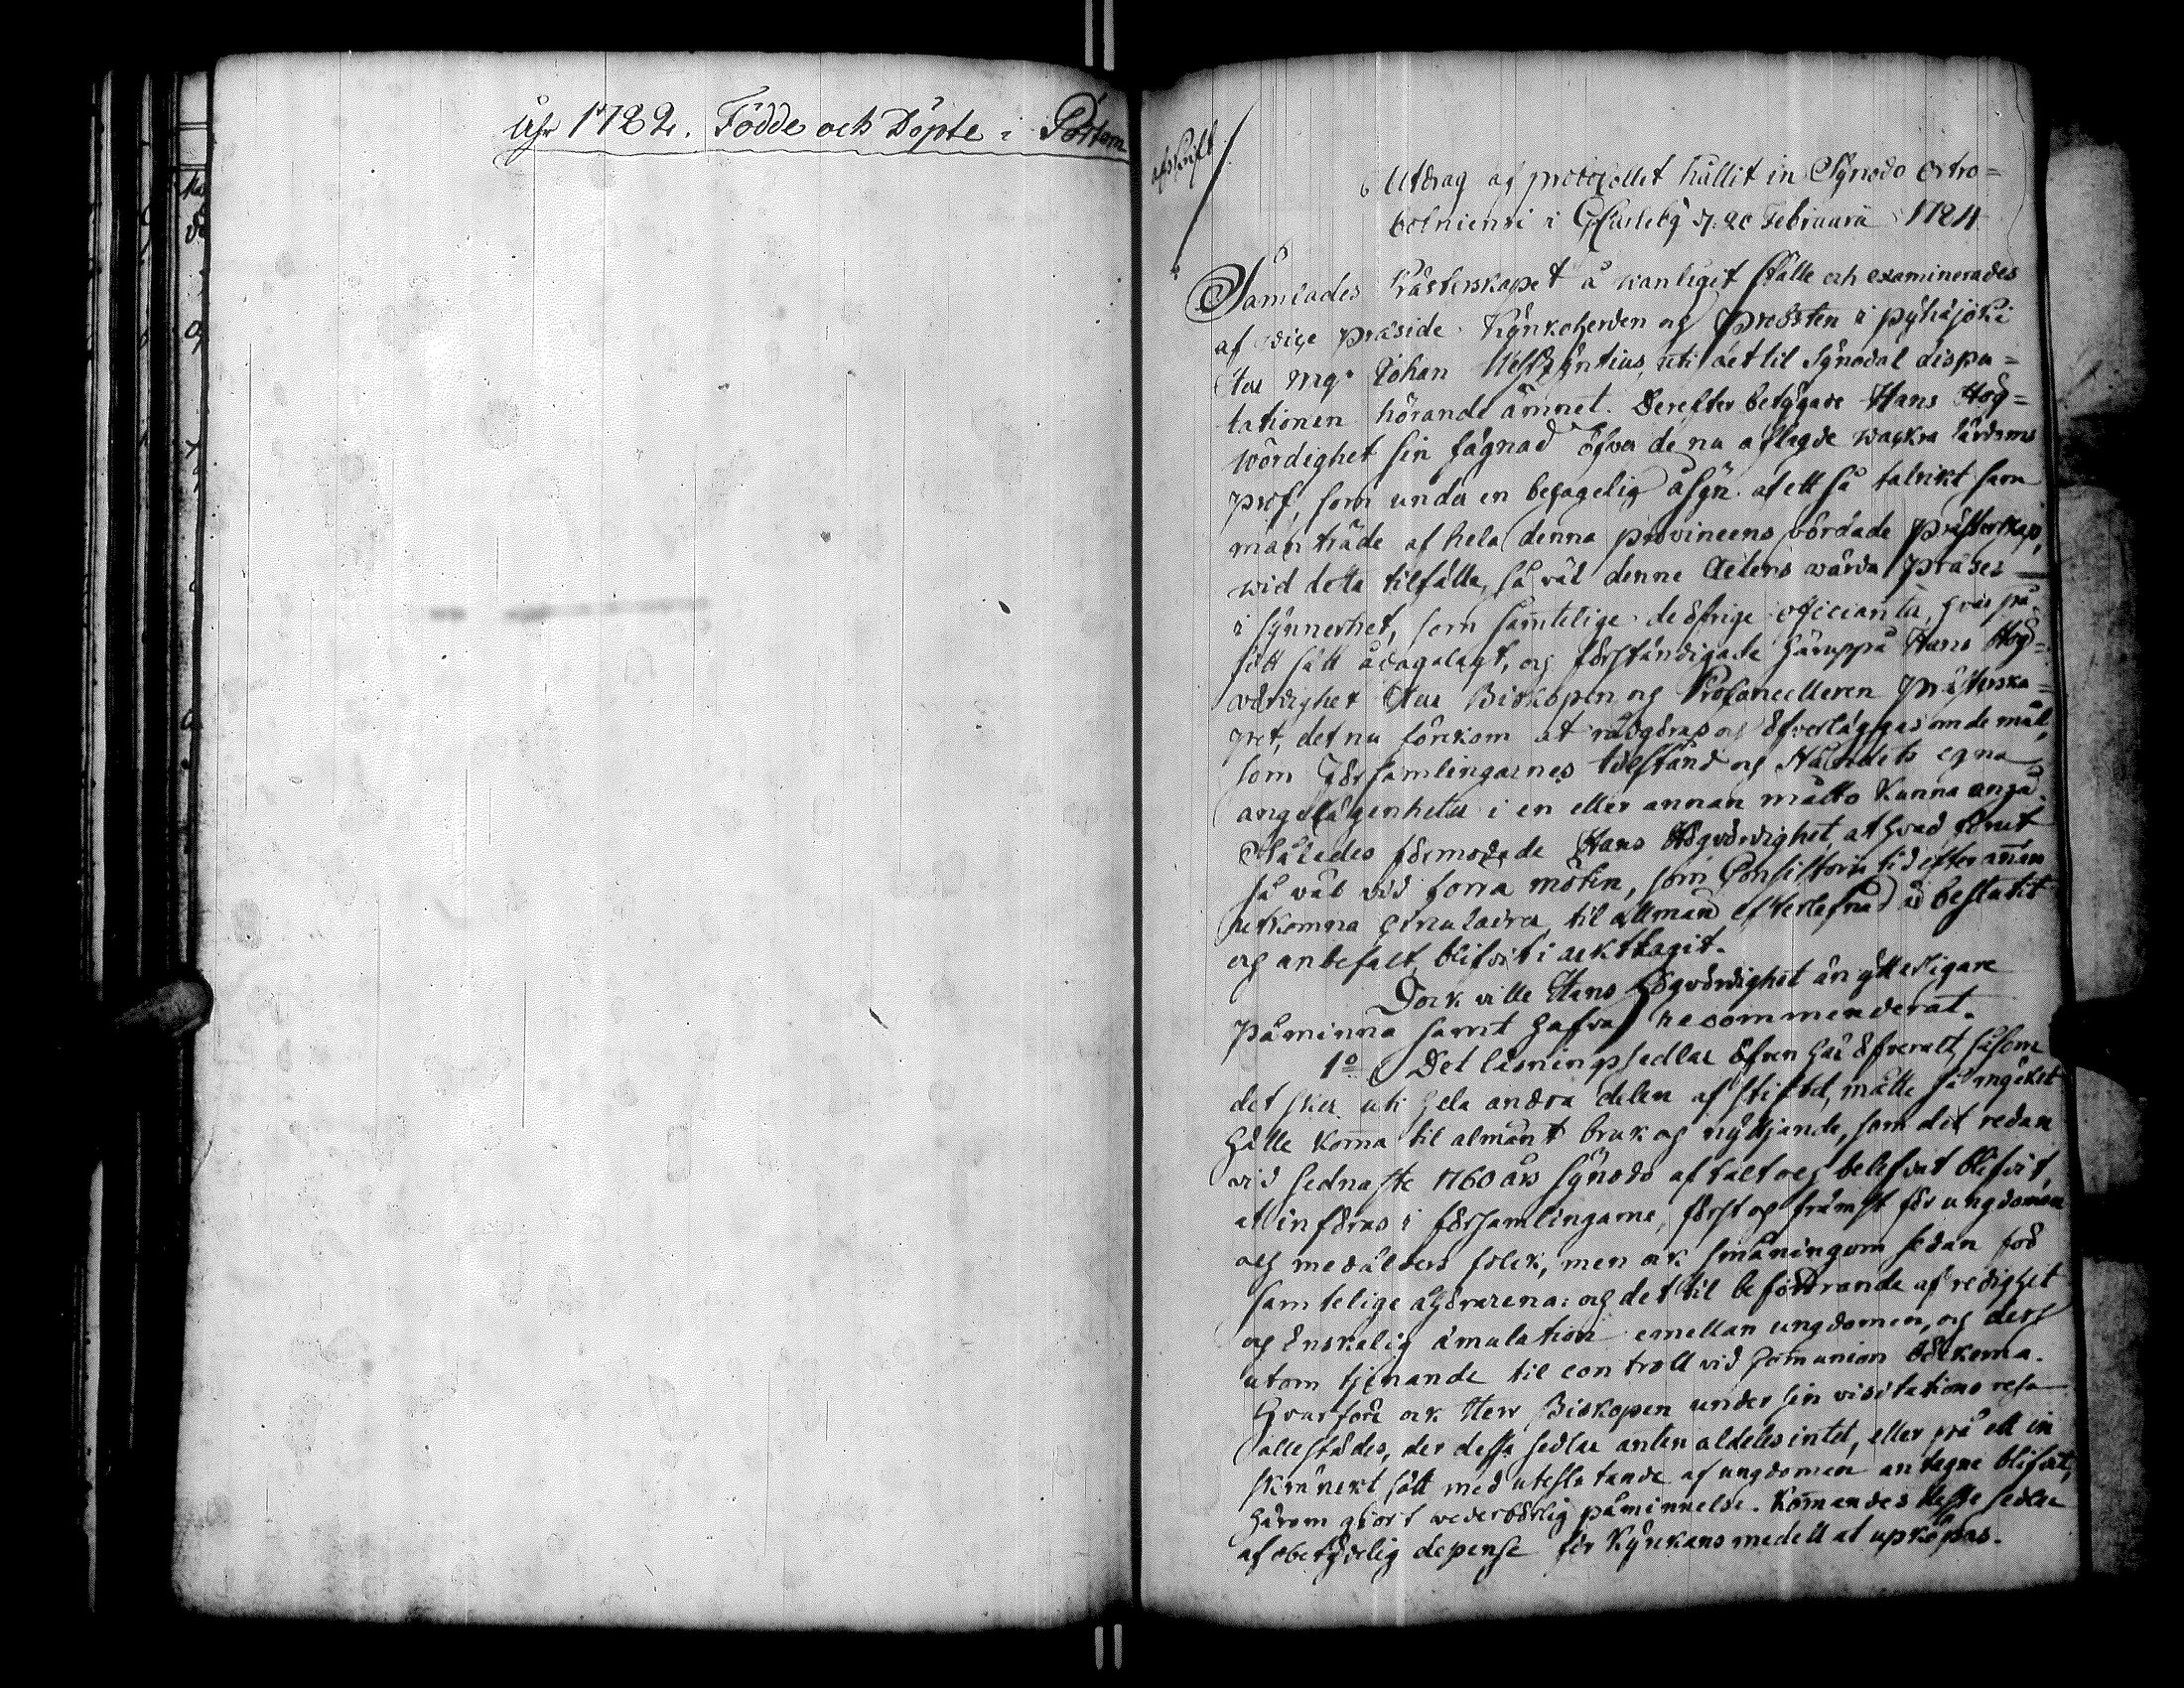 Åhr 1782. Födde och Döpte i Pörtom
afskrift
Utdrag af protocollet hållit in Synodo Ostro=
botniensi i GCarleby d. 20 Februarii 1724
Samlades Prästerskapet å wanligit ställe och examinerades
af Præside Kyrkoherden og Probsten i pyhäjoki
Herr Mgr Johan uti det til Synodal dispu=
tationen hörande ämnet. Derefter betygade Hans Hög=
wördighet sin fägnad öfver de nu aflagde wackra lärdoms
prof, som under en behagelig åsyn af ett så talrikt sam
manträde af hela denna provincens vördade prästerskap,
wid detta tilfälle, så väl denne Actens wärda Præses
i synnerhet, som samtelige de öfrige officianter, hvar på
sitt sätt ådagalagt, og förständigade häruppå Hans Hög=
vördighet Herr Biskopen og Procancelleren Prästerska=
pet, det nu förekom at rådgöras og öfverläggas om de mål,
som Församlingarnes tilstånd og Ståndets egna
angelägenheter i en eller annan måtto kunna angå.
Således förmodade Hans Högvördighet, at hvad förut
så wäl vid förra möten, som Consistorii tid efter annan
utkomna circulairer til allmän efterlefnad är beslutit
og anbefalt, blifvit i ackttagit.
Dock ville Hans Högvördighet än ytterligare
påminna samt hafva recommenderat.
1o Det läsningssedlar äfven här öfveralt, såsom
det sker uti hela andra delen af stiftet, måtte så mycket
hälle komma til almänt bruk og nyttjande, som det redan
vid sednaste 1760 års Synodo aftalt og belefvat blifvit,
at införas i församlingarne, först og främst för ungdomen
og medålders folck, men ock småningom sedan för
samtelige åhörarena: og det til befordrande af redighet
og önskelig æmulation emellan ungdomen, og dess
utom tjenande til controll vid Communion böckerna.
Hvarföre ock Herr Biskopen under sin visitations resa
allestädes, der dessa sedlar antin aldeles intet, eller på ett in
skränckt sätt med uteslutande af ungdomen antagne blifvit,
härom giort wederbörlig påminnelse. Kommandes desse sedlar
af obetydelig depense för Kyrckans medell at upköpas.